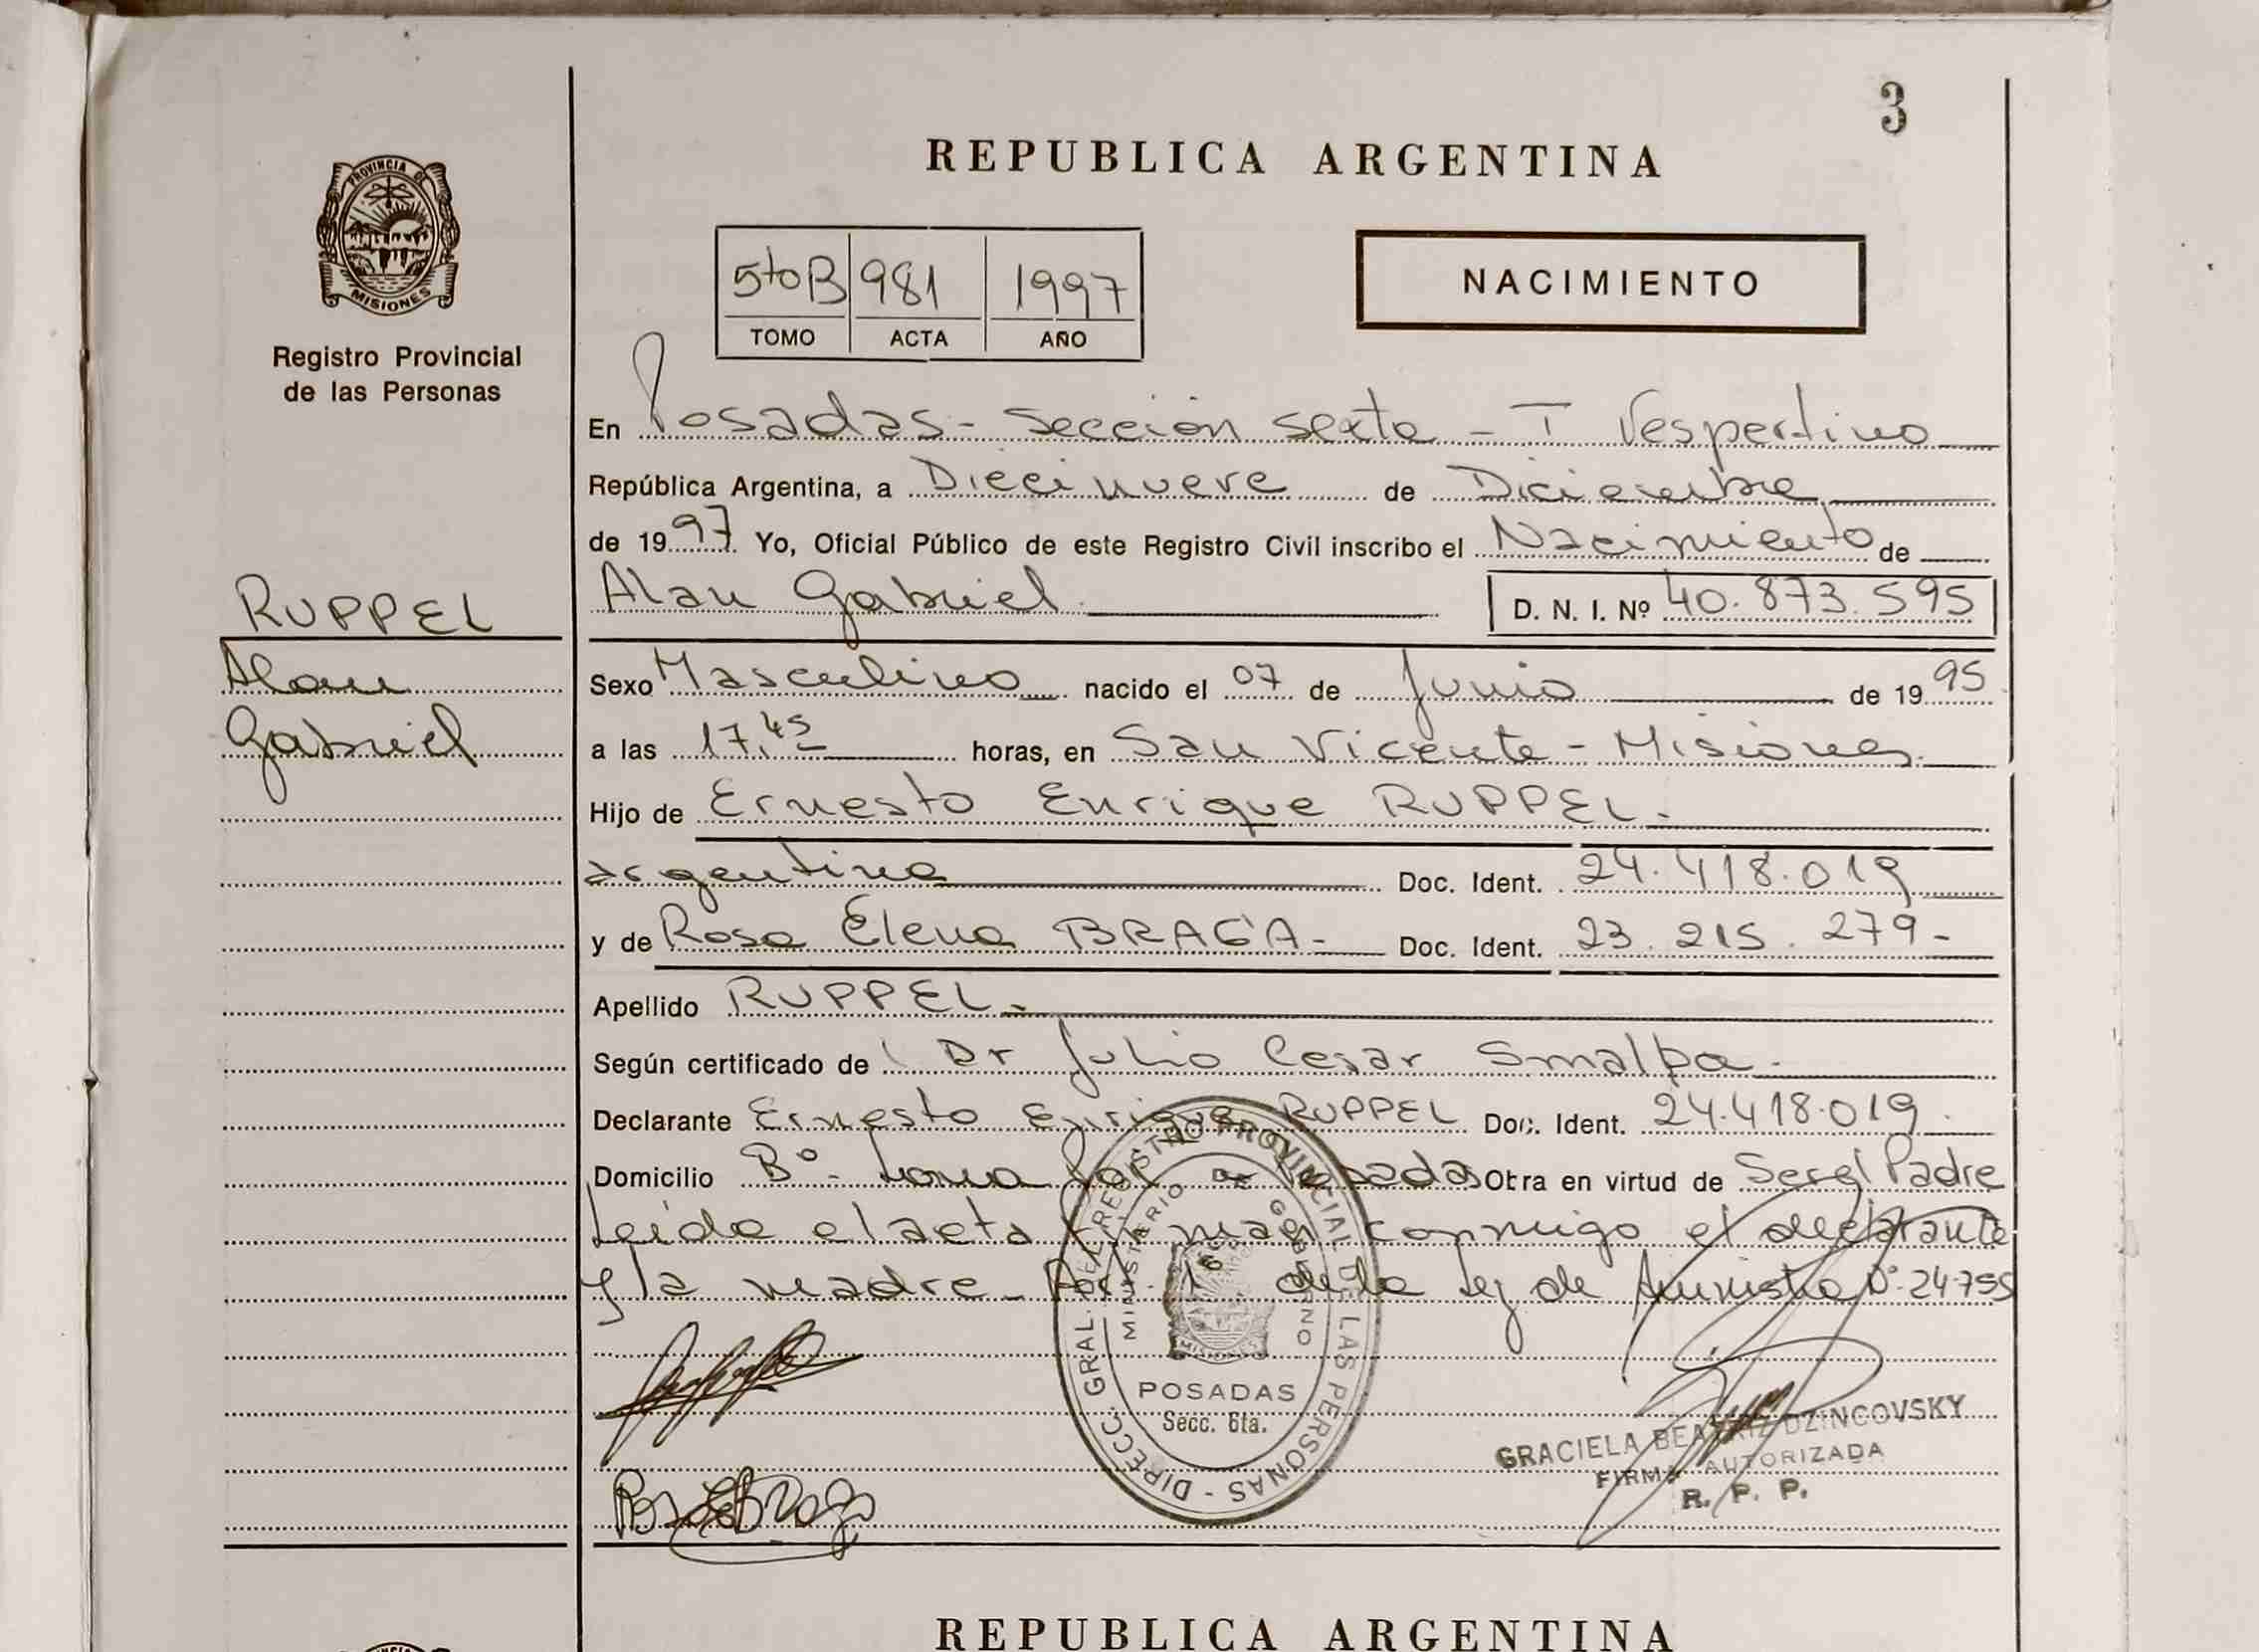 3
REPUBLICA ARGENTINA
PROVINCIA DE
MISIONES
Registro Provincial
de las Personas
5to B 981 1997
TOMO ACTA AÑO
NACIMIENTO
En Posadas - Sección Sexta - T Vespertino
República Argentina, a Diecinueve de Diciembre
de 1997 Yo, Oficial Público de este Registro Civil inscribo el Nacimiento de
RUPPEL
Alan Gabriel D. N. I. Nº 40.873.595
Alan
Gabriel
Sexo Masculino nacido el 07 de Junio de 1995
a las 17,45 horas, en San Vicente - Misiones
Hijo de Ernesto Enrique RUPPEL.
argentina Doc. Ident. 24.418.019
y de Rosa Elena BRAGA- Doc. Ident. 23.215.279-
Apellido RUPPEL-
Según certificado de Dr Julio Cesar Smalba-
Declarante Ernesto Enrique RUPPEL Doc. Ident. 24.418.019.
Domicilio Bº- Posadas Obra en virtud de Ser el Padre
Leida el acta firman conmigo el declarante
y la madre - 1º de la ley de Amnistia Nº 24.755
DIRECC. GRAL. DEL REGISTRO PROVINCIAL DE LAS PERSONAS -
MINISTERIO DE GOBIERNO
MISIONES
POSADAS
Secc. 6ta.
GRACIELA BEATRIZ DZINCOVSKY
FIRMA AUTORIZADA
R. P. P.
REPUBLICA ARGENTINA